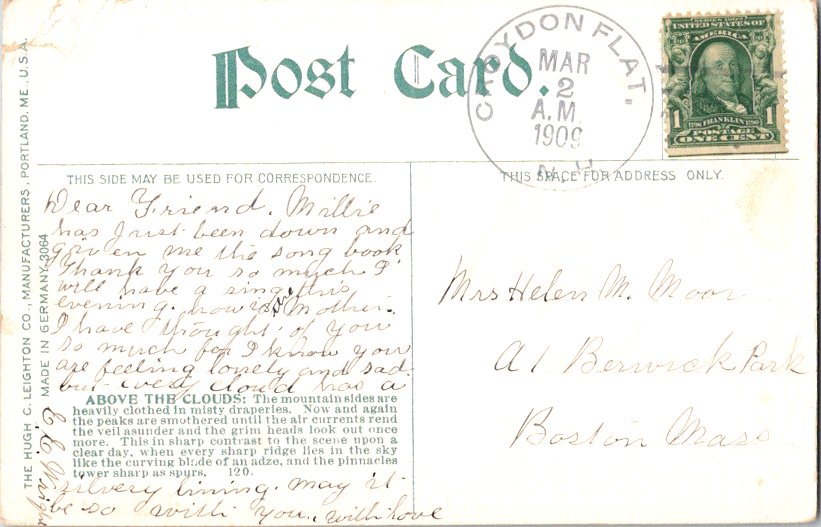 Post Card.
CROYDON FLAT,
MAR
2
A.M.
1909
N.H.
SERIES 1902
AMERICA
1 1
1706 FRANKLIN 1790
POSTAGE
ONE CENT
THE HUGH C. LEIGHTON CO., MANUFACTURERS, PORTLAND, ME., U.S.A.
MADE IN GERMANY 3064
THIS SIDE MAY BE USED FOR CORRESPONDENCE.
THIS SPACE FOR ADDRESS ONLY.
Dear Friend. Millie
has Just been down and
given me the song book
Thank you so much I
will have a sing this
evening. how is Mother.
I have thought of you
so much for I know you
are feeling lonely and sad.
but every cloud has a
ABOVE THE CLOUDS: The mountain sides are
heavily clothed in misty draperies. Now and again
the peaks are smothered until the air currents rend
the veil asunder and the grim heads look out once
more. This in sharp contrast to the scene upon a
clear day, when every sharp ridge lies in the sky
like the curving blade of an adze, and the pinnacles
tower sharp as spurs. 120.
silvery lining. may it
be so with you. with love
C. C. Wright
Mrs Helen M. Moor
A 1 Berwick Park
Boston Mass